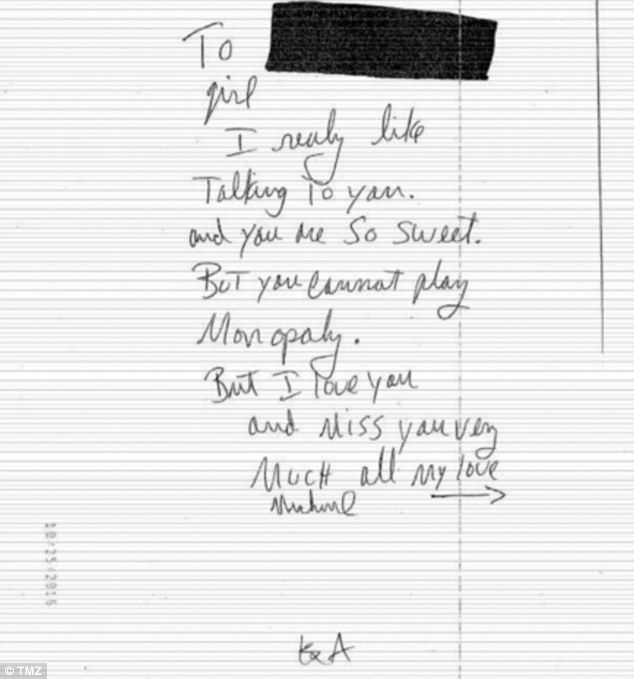 To
girl
I realy like
Talking To you.
and you are So Sweet.
BuT you cannot play
Monopaly.
But I love you
and Miss you very
MucH all My love
Michael
10/25/2016
© TMZ